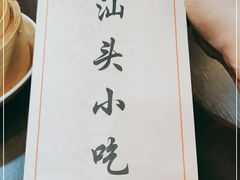 汕头小吃